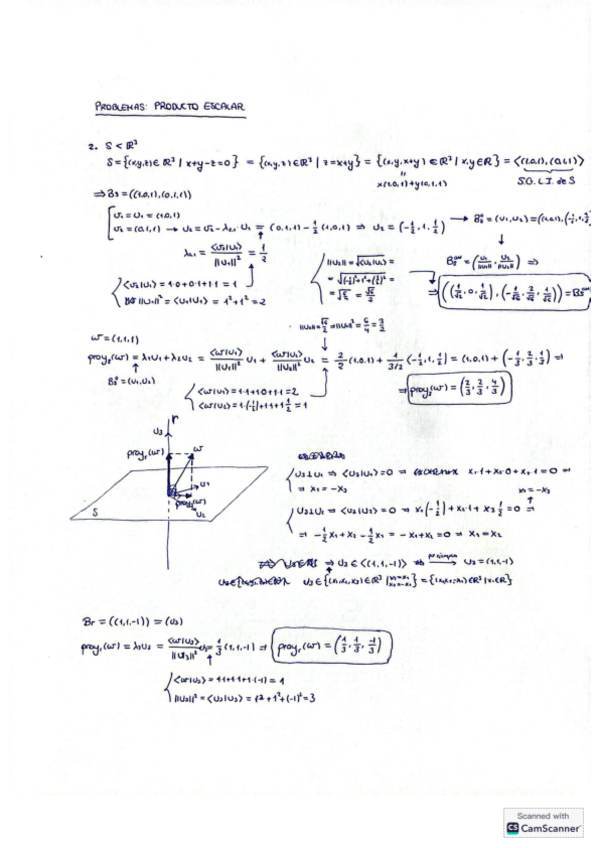 PROBLEMAS: PRODUCTO ESCALAR
2. S < ℝ³
S={(x,y,z)∈ℝ³ | x+y-z=0} = {(x,y,z)∈ℝ³ | z=x+y} = {(x,y,x+y)∈ℝ³ | x,y∈ℝ} = <(1,0,1),(0,1,1)>
x(1,0,1)+y(0,1,1)
S.G. L.I. de S
⇒ Bs=((1,0,1),(0,1,1))
v₁ = u₁ = (1,0,1)
v₂ = (0,1,1) → u₂ = v₂ - λ₂,₁ u₁ = (0,1,1) - 1/2 (1,0,1) ⇒ u₂ = (-1/2, 1, 1/2) → = (u₁,u₂) = ((1,0,1),(-1/2,1,
λ₂,₁ = <v₂|u₁>/||u₁||² = 1/2
<v₂|u₁> = 1·0+0·1+1·1 = 1
||u₁||² = <u₁|u₁> = 1²+1² = 2
||u₂|| = √<u₂|u₂> =
= √(-1/2)²+1²+(1/2)² =
= (u₁/||u₁||, u₂/||u₂||) ⇒
w = (1,1,1)
proyₛ(w) = λ₁u₁ + λ₂u₂ = <w|u₁>/||u₁||² u₁ + <w|u₂>/||u₂||² u₂ = 2/2 (1,0,1) + 1/3/2 (-1/2,1,1/2) = (1,0,1) + (-1/3, 2/3, 1/3) ⇒
= (u₁,u₂)
<w|u₁> = 1·1+1·0+1·1 = 2
<w|u₂> = 1·(-1/2)+1·1+1·1/2 = 1
⇒ proyₛ(w) = (2/3, 2/3, 4/3)
r
u₃
proyᵣ(w)
w
u₁
proyₛ(w)
u₂
S
u₃⊥u₁ ⇒ <u₃|u₁>=0 ⇒ x₁·1+x₂·0+x₃·1=0 ⇒
⇒ x₁=-x₃
x₁=-x₃
u₃⊥u₂ ⇒ <u₃|u₂>=0 ⇒ x₁(-1/2)+x₂·1+x₃ 1/2=0 ⇒
⇒ -1/2 x₁+x₂-1/2 x₁ = -x₁+x₂=0 ⇒ x₁=x₂
u₃∈<(1,1,-1)> u₃=(1,1,-1)
Br = ((1,1,-1)) = (u₃)
proyᵣ(w) = λ₃u₃ = <w|u₃>/||u₃||² u₃ = 1/3 (1,1,-1) ⇒ proyᵣ(w) = (1/3, 1/3, -1/3)
<w|u₃> = 1·1+1·1+1·(-1) = 1
||u₃||² = <u₃|u₃> = 1²+1²+(-1)² = 3
Scanned with
CS CamScanner